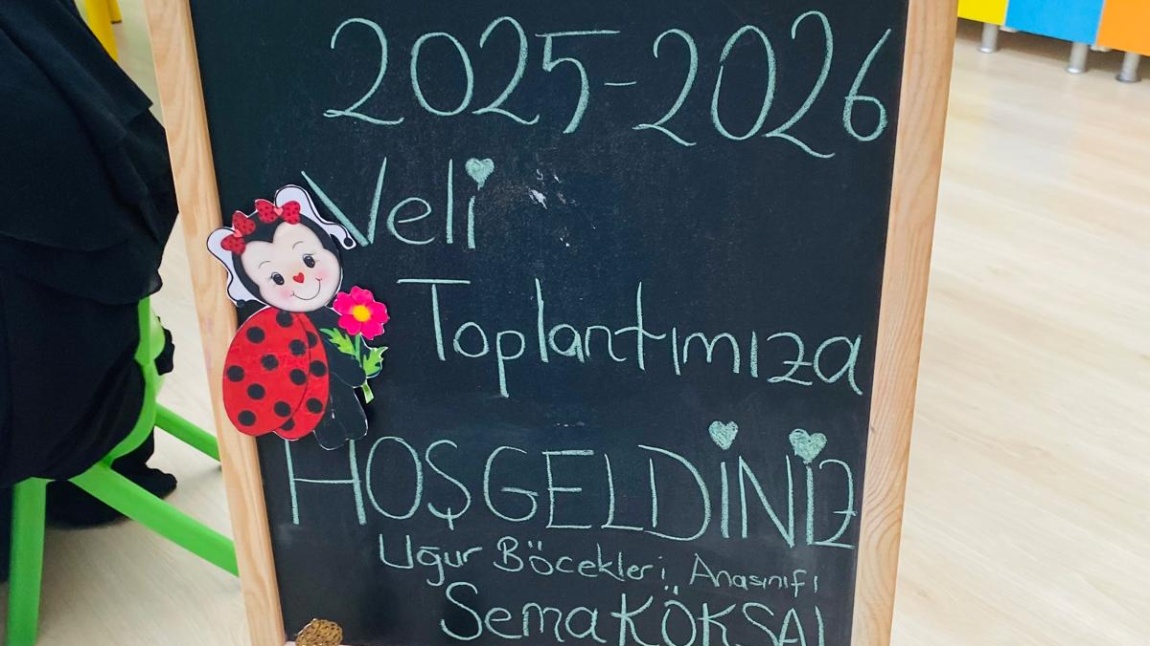 2025-2026
Veli
Toplantımıza
HOŞGELDİNİZ
Uğur Böcekleri Anasınıfı
Sema KÖKSAL